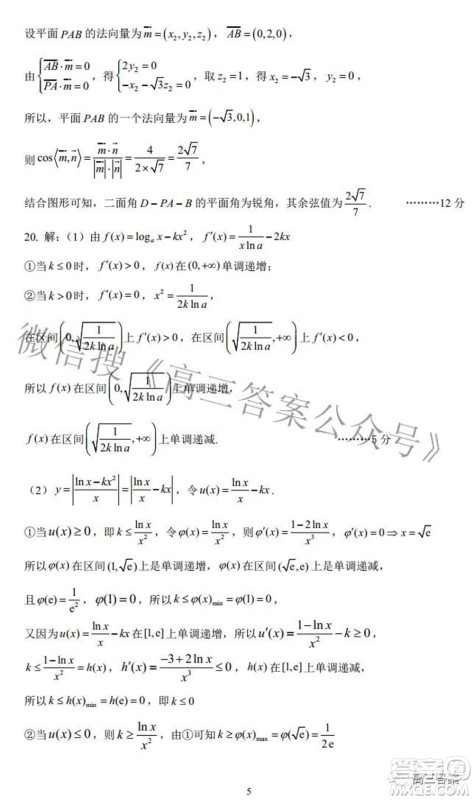 设平面 PAB 的法向量为 m = (x₂, y₂, z₂)，AB = (0,2,0)，
由{AB·m=0 PA·m=0，得{2y₂=0 -x₂-√3z₂=0，取 z₂=1，得 x₂=-√3，y₂=0，
所以，平面 PAB 的一个法向量为 m = (-√3,0,1)，
则 cos⟨m,n⟩ = m·n/(|m|·|n|) = 4/(2×√7) = 2√7/7，
结合图形可知，二面角 D-PA-B 的平面角为锐角，其余弦值为 2√7/7. ………12 分
20. 解：（1）由 f(x)=logₐx-kx²，f′(x)=1/(x ln a)-2kx
①当 k≤0 时，f′(x)>0，f(x)在(0,+∞)单调递增；
②当 k>0 时，f′(x)=0，x²=1/(2k ln a)，
在区间(0,√(1/(2k ln a)))上 f′(x)>0，在区间(√(1/(2k ln a)),+∞)上 f′(x)<0，
所以 f(x)在区间(0,√(1/(2k ln a)))上单调递增，
f(x)在区间(√(1/(2k ln a)),+∞)上单调递减. ………5 分
（2）y=|(ln x-kx²)/x|=|ln x/x-kx|，令 u(x)=ln x/x-kx.
①当 u(x)≥0，即 k≤ln x/x²，令 φ(x)=ln x/x²，则 φ′(x)=(1-2ln x)/x³，φ′(x)=0⇒x=√e
所以 φ(x)在区间(1,√e)上是单调递增，所以 φ(x)在区间(√e,e)上是单调递减，
且 φ(e)=1/e²，φ(1)=0，所以 k≤φ(x)min=φ(1)=0，
又因为 u(x)=ln x/x-kx 在[1,e]上单调递增，所以 u′(x)=(1-ln x)/x²-k≥0，
k≤(1-ln x)/x²=h(x)，h′(x)=(-3+2ln x)/x³≤0，h(x)在[1,e]上单调递减，
所以 k≤h(x)min=h(e)=0，即 k≤0
②当 u(x)≤0，则 k≥ln x/x²，由①可知 k≥φ(x)max=φ(√e)=1/(2e)
微信搜《高三答案公众号》
5
高三答案
MXQE.COM